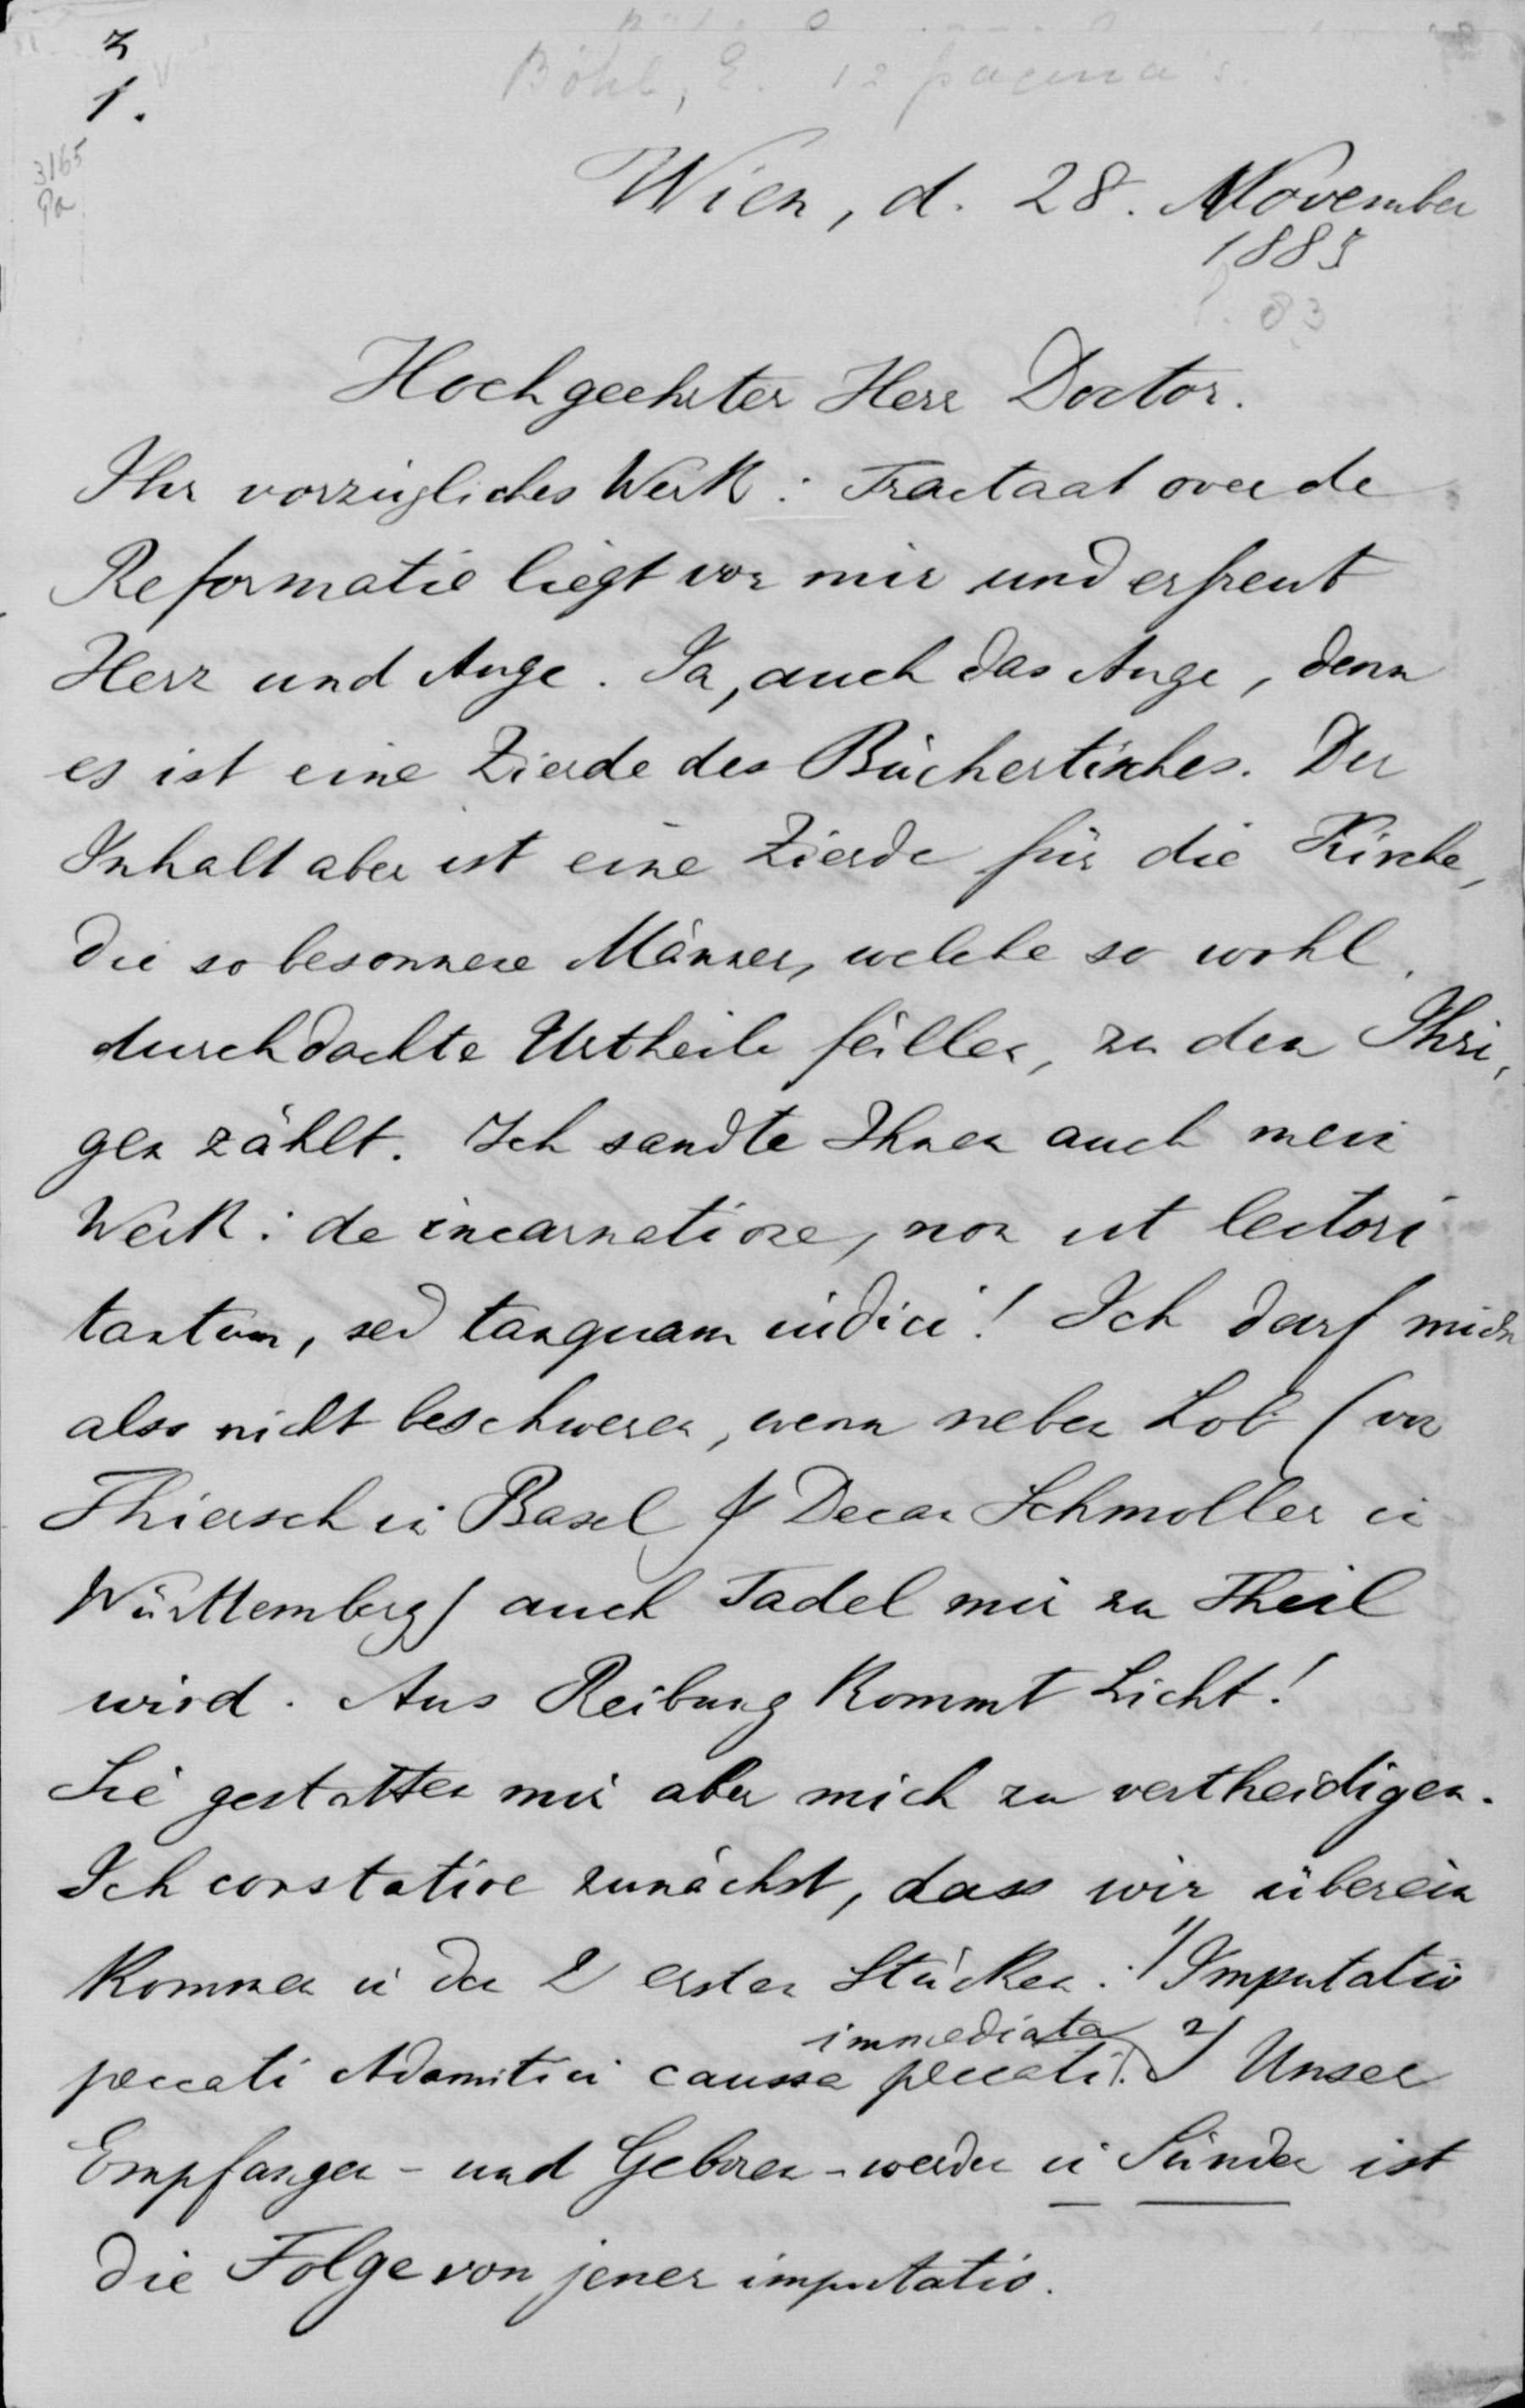 Böhl, E. 12 pagina's.
3
1.
3165
9a
Wien, d. 28. November
1883
83
Hochgeehrter Herr Doctor.
Ihr vorzügliches Werk: Tractaat over de
Reformatie liegt vor mir und erfreut
Herz und Auge. Ja, auch das Auge, denn
es ist eine Zierde des Büchertisches. Der
Inhalt aber ist eine Zierde für die Kirche,
die so besonnene Männer, welche so wohl
durchdachte Urtheile fällen, zu den Ihri,
gen zählt. Ich sandte Ihnen auch mein
Werk: de incarnatione, non ut lectori
tantum, sed tanquam iudici! Ich darf mich
also nicht beschweren, wenn neben Lob (von
Thiersch in Basel & Decan Schmoller in
Württemberg) auch Tadel mir zu Theil
wird. Aus Reibung kommt Licht!
Sie gestatten mir aber mich zu vertheidigen.
Ich constatire zunächst, dass wir überein
kommen in den 2 ersten Stücken: 1) Imputatio
peccati Adamitici caussa immediata peccati. 2) Unser
Empfangen- und Geboren-werden in Sünden ist
die Folge von jener imputatio.